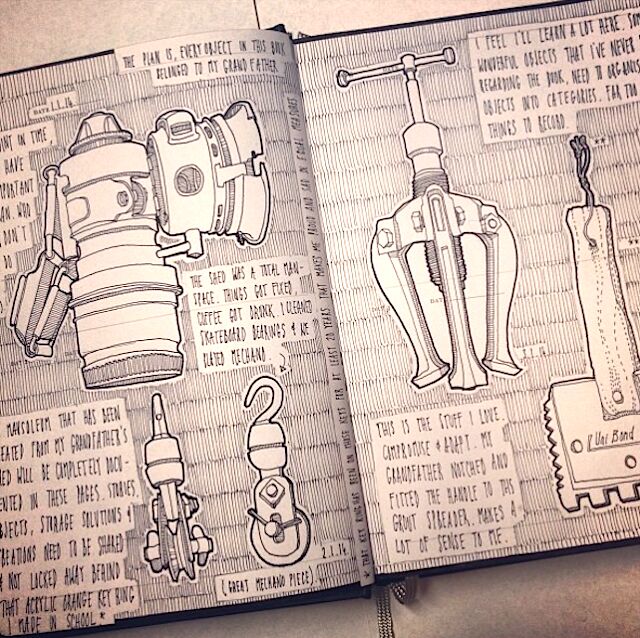 THE PLAN IS, EVERY OBJECT IN THIS BOOK
BELONGED TO MY GRANDFATHER.
DATE 1.1.14
POINT IN TIME
HAVE
IMPORTANT
WHO
DON'T
DO
THE SHED WAS A TOTAL MAN-
SPACE. THINGS GOT FIXED,
COFFEE GOT DRUNK. I CLEANED
SKATEBOARD BEARINGS & WE
PLAYED MECHANO.
MAUSOLEUM THAT HAS BEEN
CREATED FROM MY GRANDFATHER'S
SHED WILL BE COMPLETELY DOCU-
MENTED IN THESE PAGES. STORIES,
OBJECTS, STORAGE SOLUTIONS &
CREATIONS NEED TO BE SHARED
& NOT LOCKED AWAY BEHIND
THAT ACRYLIC ORANGE KEY RING
I MADE IN SCHOOL *
2.1.14
(GREAT MECHANO PIECE)
* THAT KEY RING HAS BEEN ON THOSE KEYS FOR AT LEAST 20 YEARS THAT MAKES ME PROUD AND SAD IN EQUAL MEASURES
I FEEL I'LL LEARN A LOT HERE. SO
WONDERFUL OBJECTS THAT I'VE NEVER
REGARDING THE BOOK, NEED TO ORGANISE
OBJECTS INTO CATEGORIES. FAR TOO
THINGS TO RECORD.
**
THIS IS THE STUFF I LOVE.
COMPROMISE & ADAPT. MY
GRANDFATHER NOTCHED AND
FITTED THE HANDLE TO THIS
GROUT SPREADER. MAKES A
LOT OF SENSE TO ME.
Uni Bond